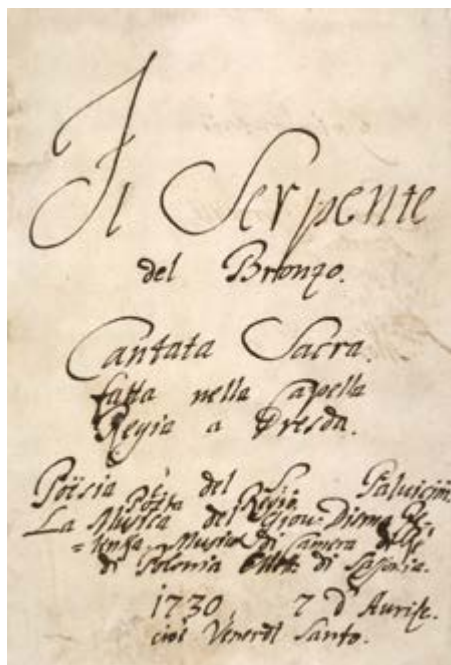 Il Serpente
del Bronzo.
Cantata Sacra.
fatta nella Capella
Regia a Dresda.
Poësia è del
Poëta Regio
La Musica del Giov: Disma
Musica di Camera di
di Polonia di Sassonia.
1730, 7 d'Aurile.
cioè Venerdì Santo.